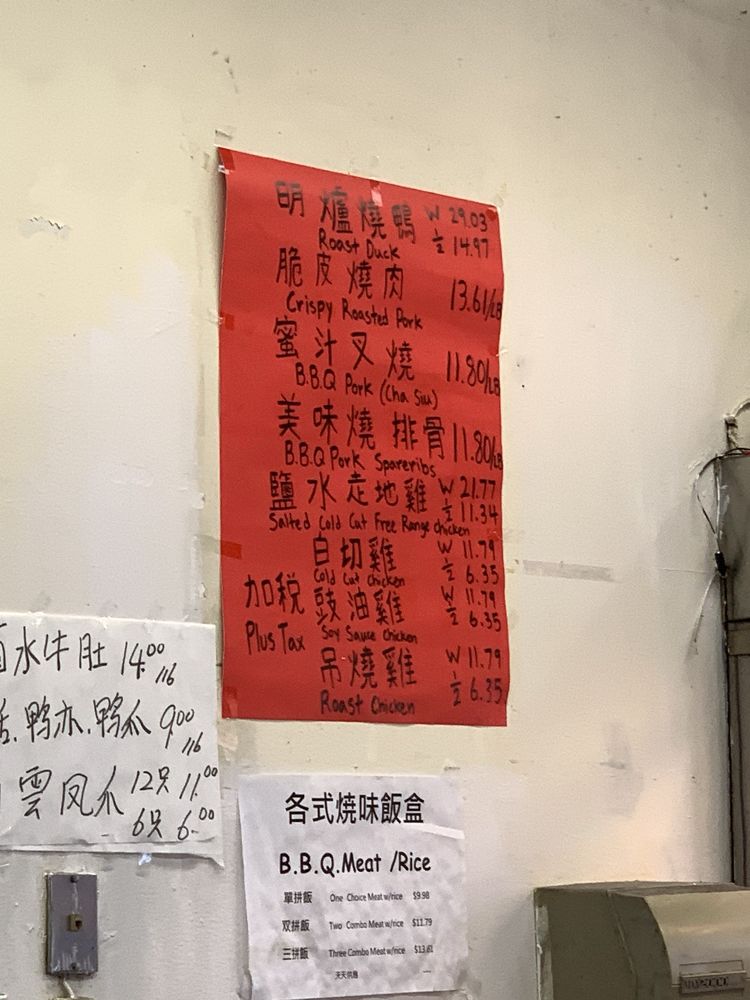 明爐燒鴨 W 29.03
Roast Duck ½ 14.97
脆皮燒肉 13.61/LB
Crispy Roasted Pork
蜜汁叉燒 11.80/LB
B.B.Q Pork (Cha Siu)
美味燒排骨 11.80/LB
B.B.Q Pork Spareribs
鹽水走地雞 W 21.77
½ 11.34
Salted Cold Cut Free Range chicken
白切雞 W 11.79
Cold Cut Chicken ½ 6.35
加税 豉油雞 W 11.79
½ 6.35
Plus Tax Soy Sauce Chicken
吊燒雞 W 11.79
½ 6.35
Roast Chicken
水牛肚 14.00/lb
鸭亦.鸭爪 9.00/lb
雲凤爪 12只 11.00
6只 6.00
各式燒味飯盒
B.B.Q.Meat /Rice
單拼飯 One Choice Meat w/rice $9.98
双拼飯 Two Combo Meat w/rice $11.79
三拼飯 Three Combo Meat w/rice $13.61
天天供應